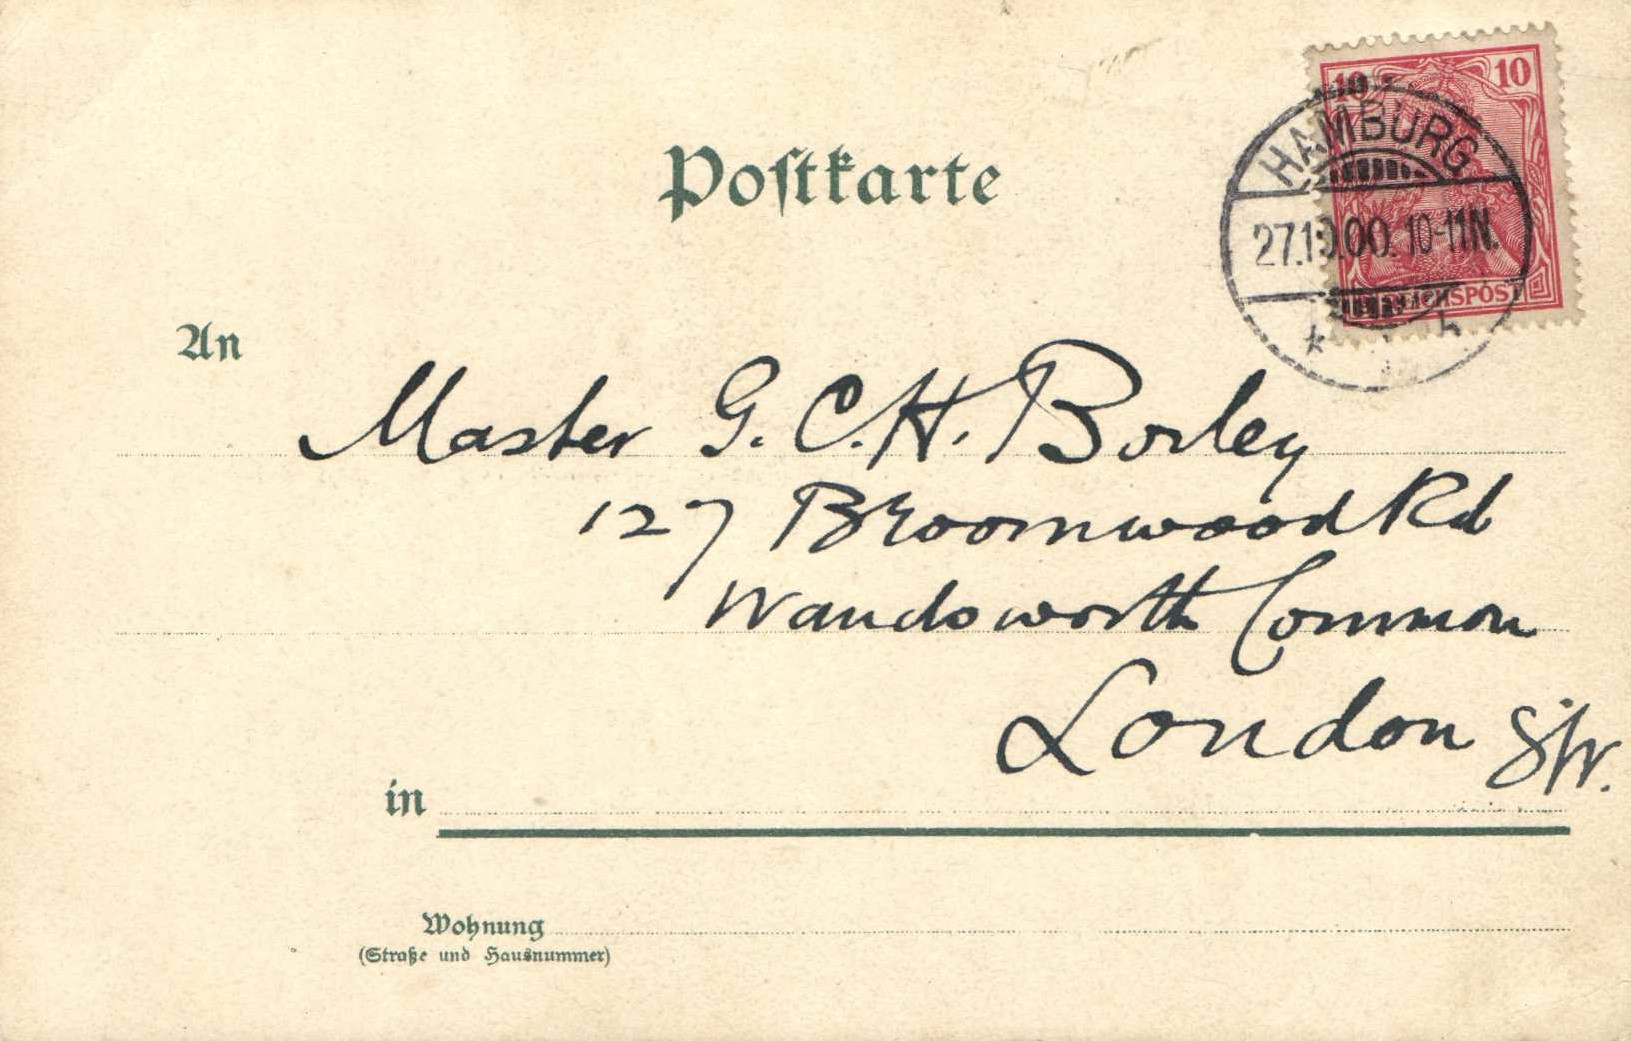 Postkarte
10 10
HAMBURG
27.10.00. 10-11N.
REICHSPOST
* h
An
Master G. C. H. Borley
127 Broomwood Rd
Wandsworth Common
London S.W.
in
Wohnung
(Straße und Hausnummer)